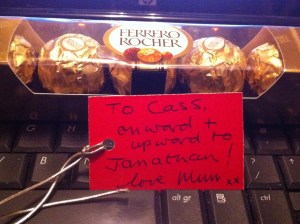 FERRERO
ROCHER
To Cass,
onward +
upward to
Janathan!
love Mum xx
alt gr
ctrl